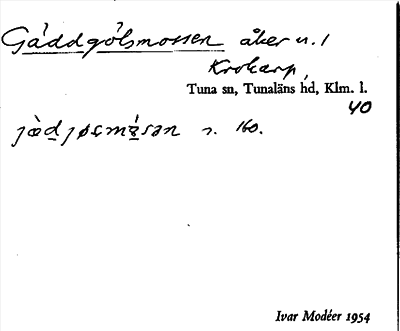 Gåddgölsmossen åker n. 1
Krokarp,
Tuna sn, Tunaläns hd, Klm. l.
40
s. 160.
Ivar Modéer 1954